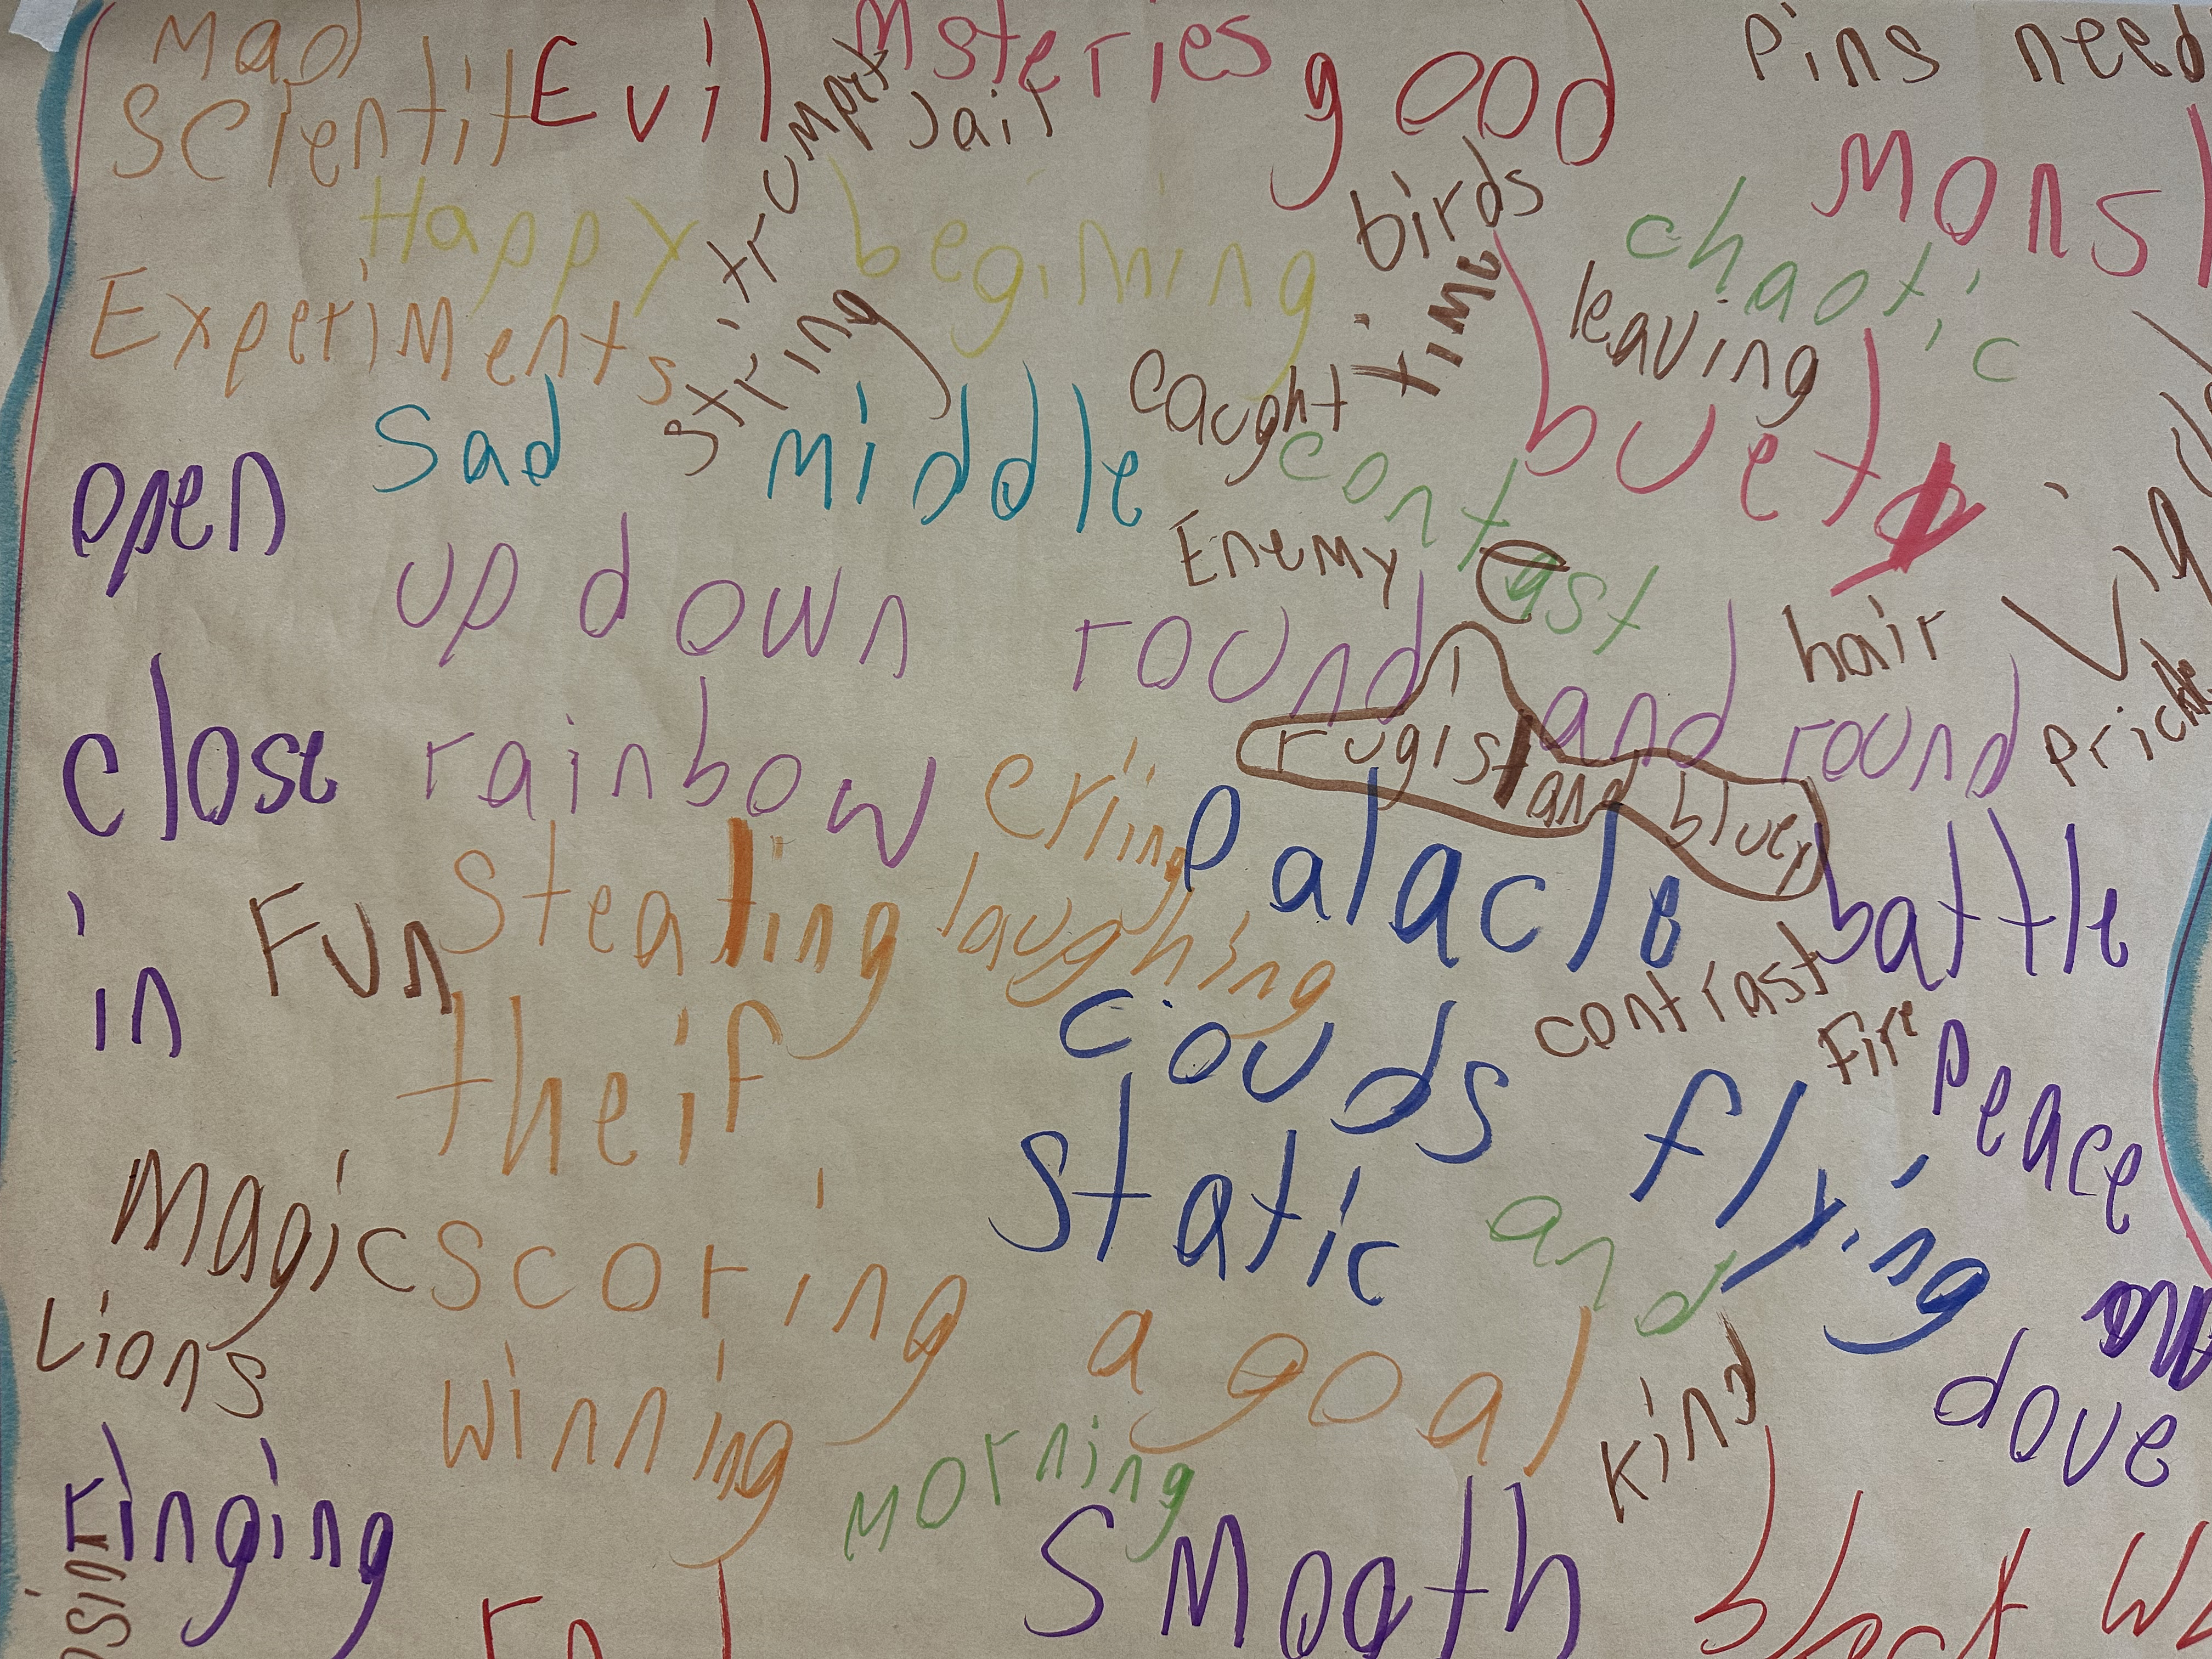 Mad
Scientit
Evil
Msteries
Jail
good
Pins need
Mons
birds
Happy begining
chaotic
leaving
time
Experiments
string
caught
Sad middle
buety
open
contast
Enemy
up down round and round
hair
close
rainbow
rugist and bluey
Palacle
Stealing
laughing
battle
in
Fun
contrast
Fire
theif
couds
Peace
flying
Static
and
Magic
scoring a goal
Lions
winning
kind
dove
morning
ringing
Smooth